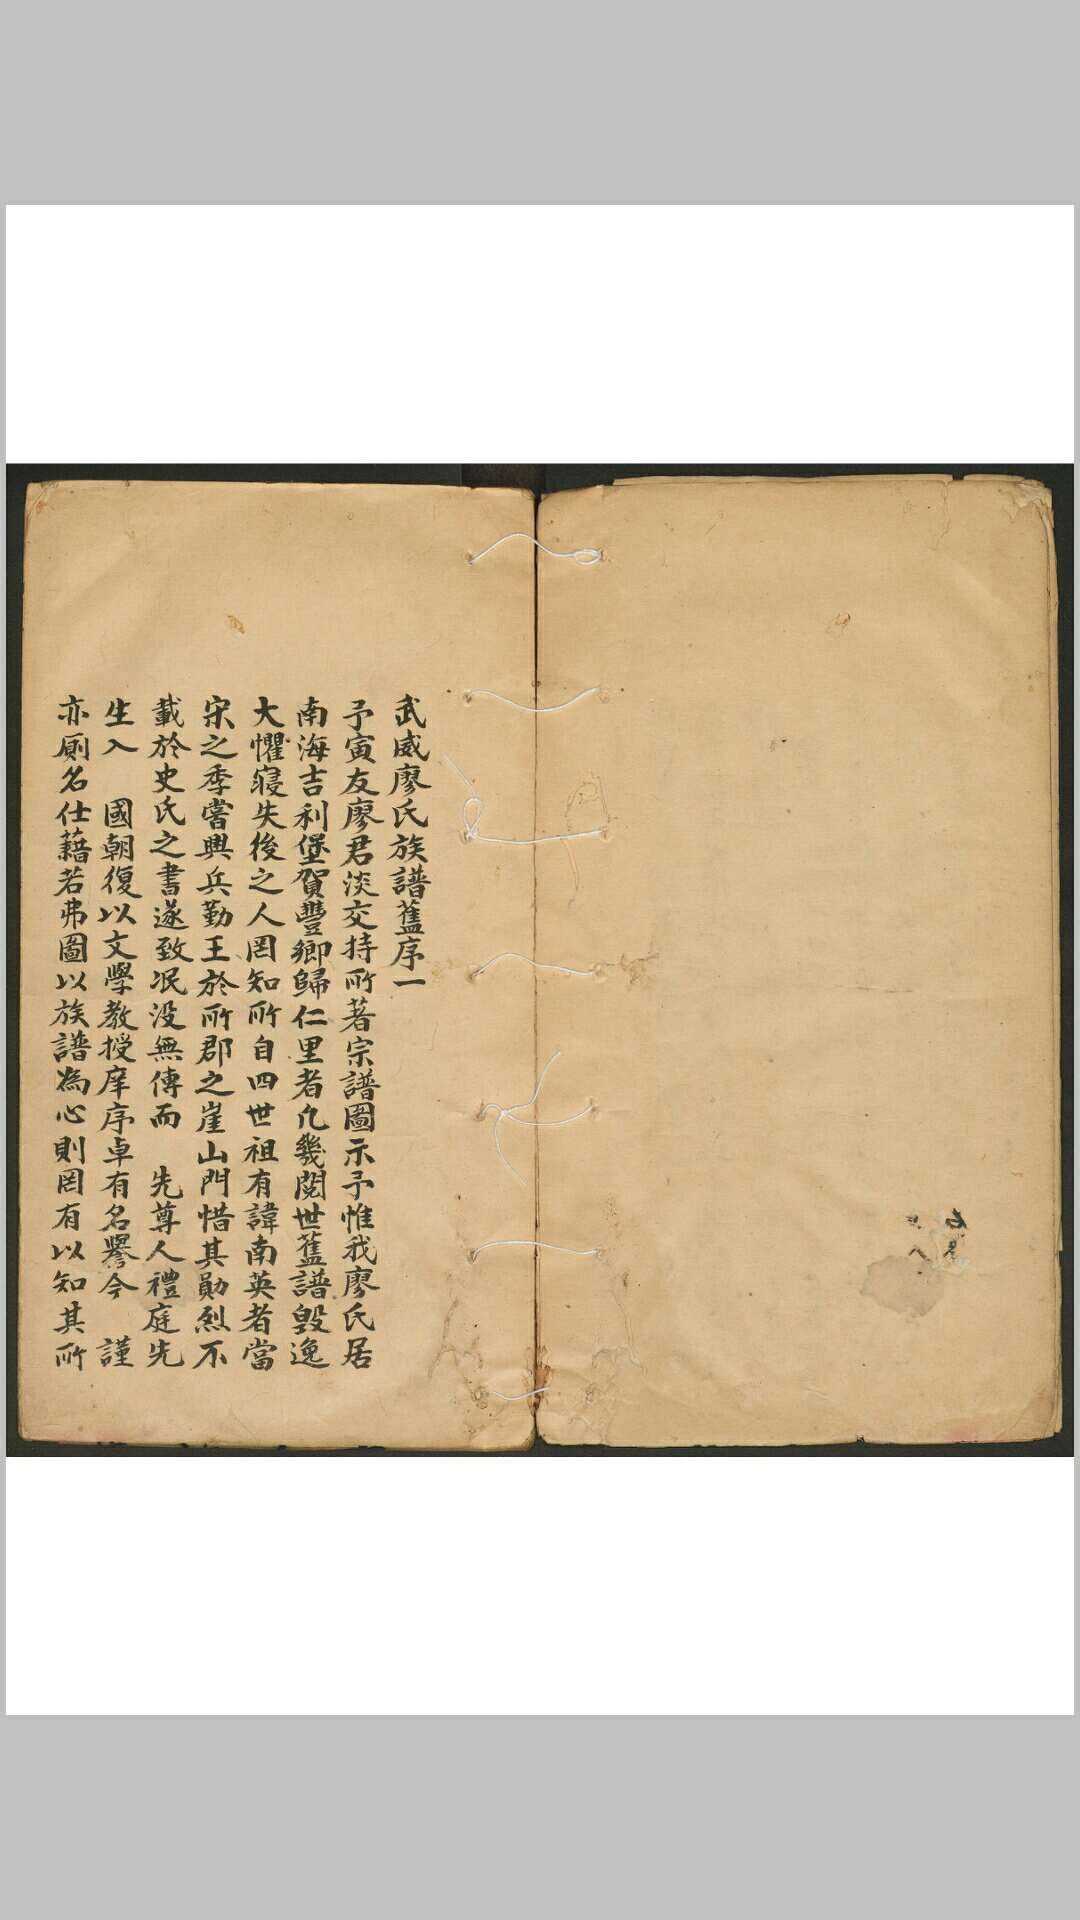 武威廖氏族譜舊序一
予寅友廖君淡交持所著宗譜圖示予惟我廖氏居
南海吉利堡賀豐鄉歸仁里者凢幾閱世舊譜毀逸
大懼寖失後之人罔知所自四世祖有諱南英者當
宋之季嘗興兵勤王於所郡之崖山門惜其勛烈不
載於史氏之書遂致泯没無傳而 先尊人禮庭先
生入 國朝復以文學教授庠序卓有名譽今 謹
亦厠名仕藉若弗圖以族譜為心則罔有以知其所